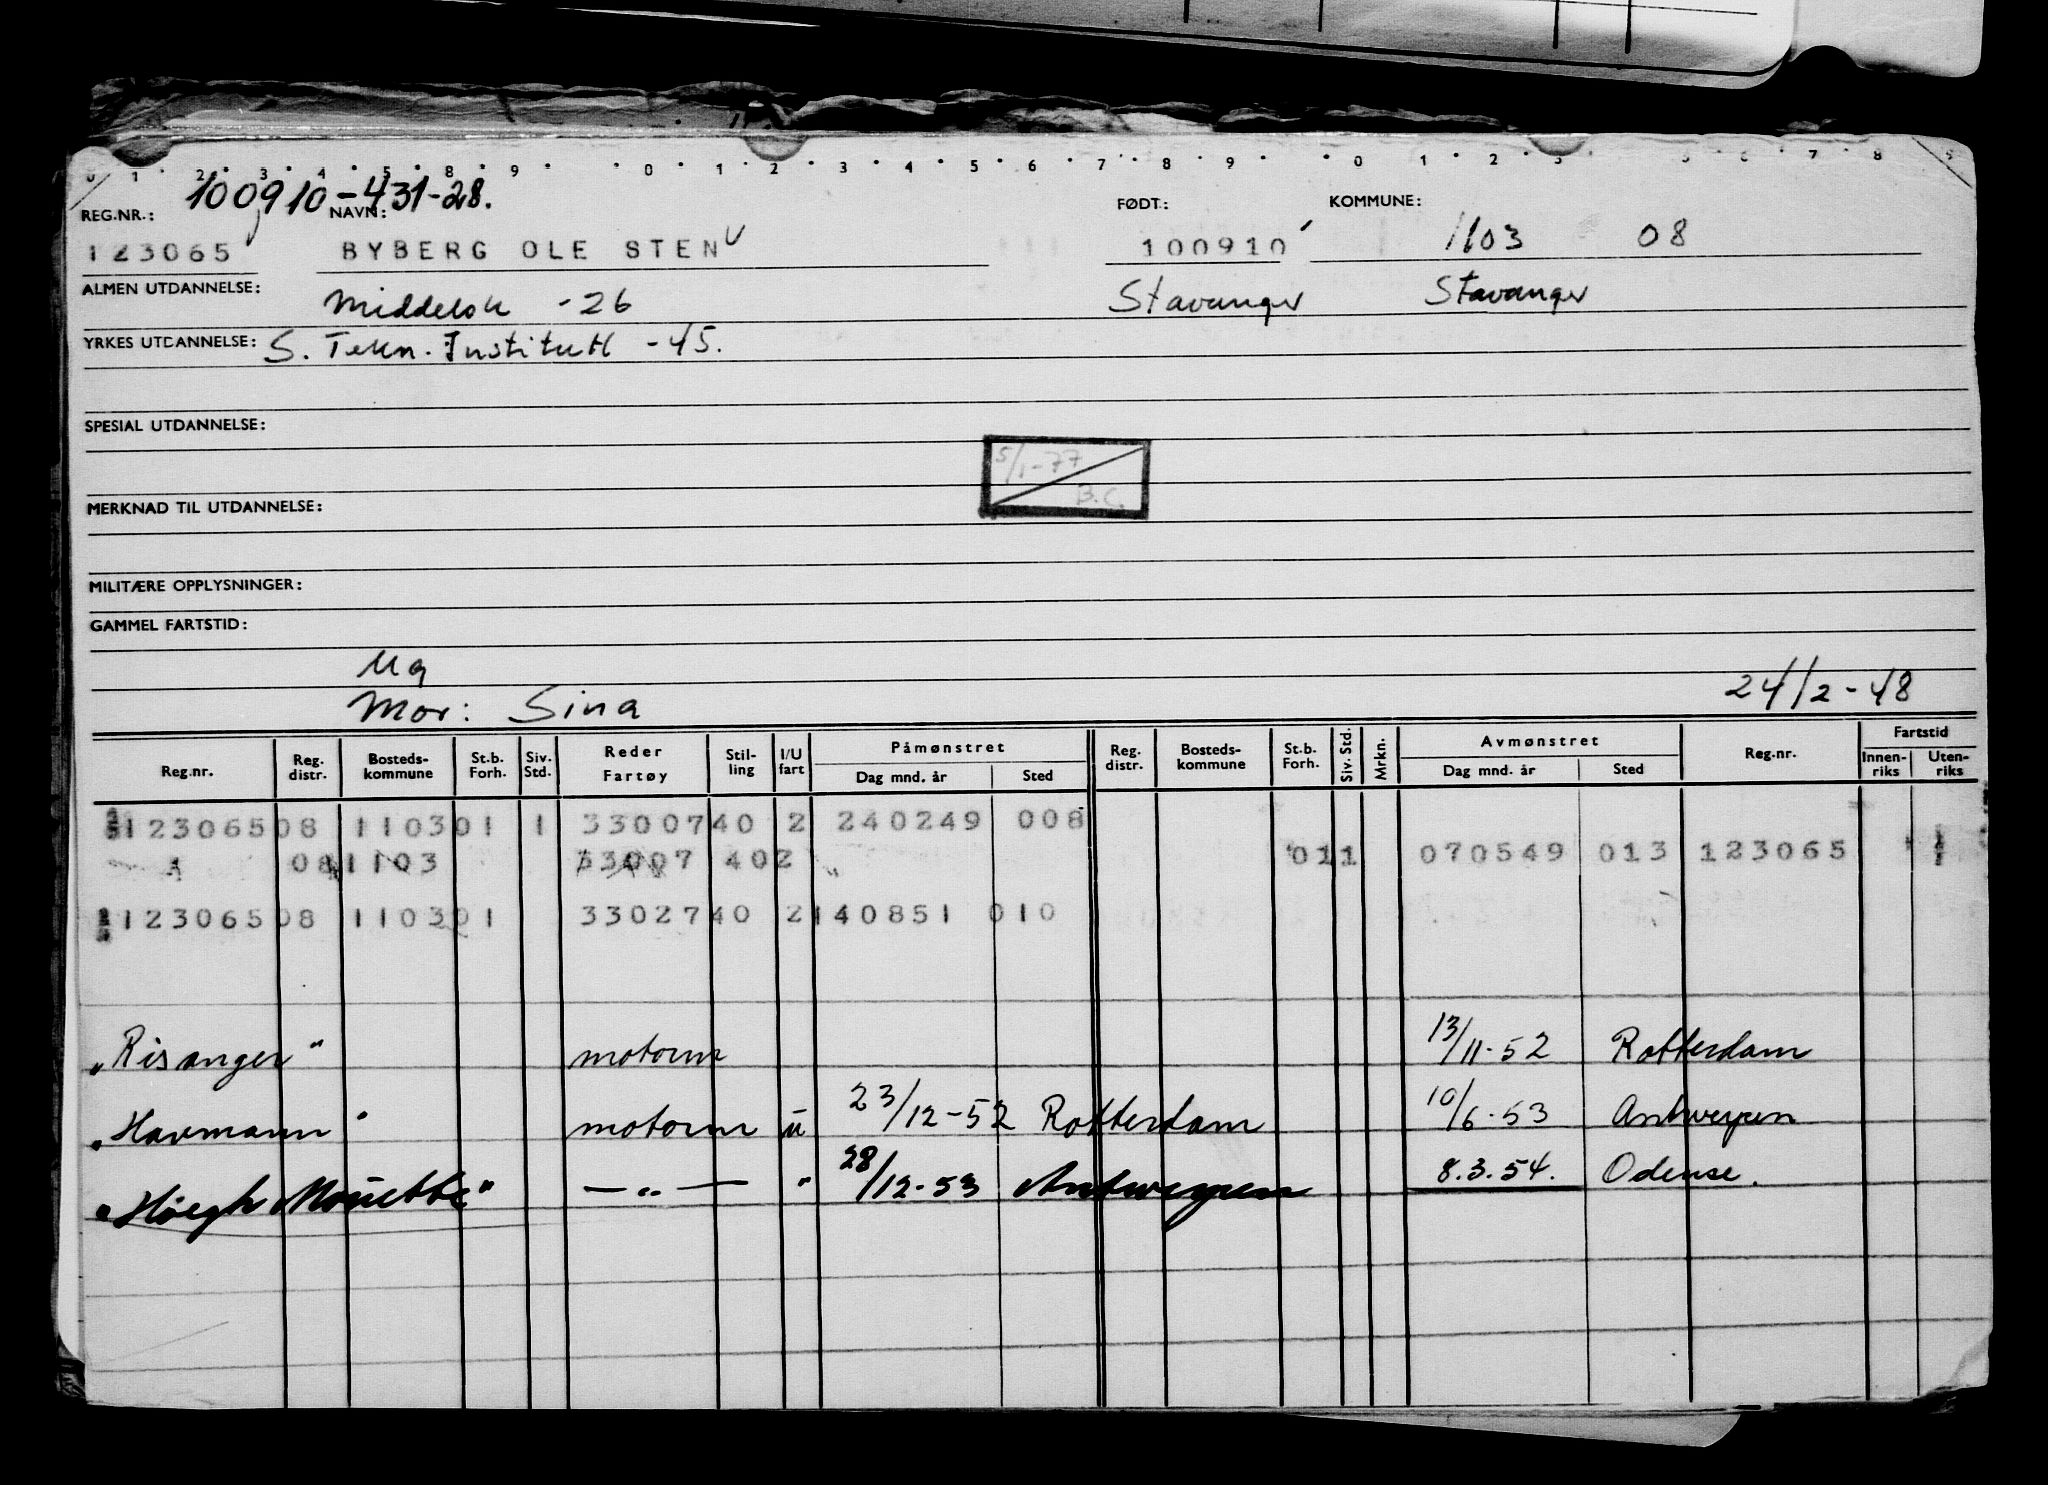 0 1 2 3 4 5 8 9 0 1 2 3 4 5 6 7 8 9 0 1 2 3 5 6 7 8 9
100910-431-28.
REG.NR.: NAVN: FØDT: KOMMUNE:
123065 BYBERG OLE STEN 100910 1103 08
ALMEN UTDANNELSE: Middelsk -26 Stavanger Stavanger
YRKES UTDANNELSE: S. Tekn. Institutt -45.
SPESIAL UTDANNELSE:
5/1-77
B.C.
MERKNAD TIL UTDANNELSE:
MILITÆRE OPPLYSNINGER:
GAMMEL FARTSTID:
Ug
Mor: Sina 24/2-48
Reg.nr. Reg. distr. Bosteds-kommune St.b. Forh. Siv. Std. Reder Fartøy Stil-ling I/U fart Påmønstret Dag mnd. år Sted Reg. distr. Bosteds-kommune St.b. Forh. Siv. Std. Mrkn. Avmønstret Dag mnd. år Sted Reg.nr. Fartstid Innen-riks Uten-riks
123065 08 1103 01 1 33007 40 2 240249 008
08 1103 33007 40 2 01 1 070549 013 123065
123065 08 1103 01 33027 40 2 140851 010
"Risanger" motorm 13/11-52 Rotterdam
"Havmann" motorm u 23/12-52 Rotterdam 10/6-53 Antwerpen
"Höegh Mouette" —"— " 28/12-53 Antwerpen 8.3.54. Odense.